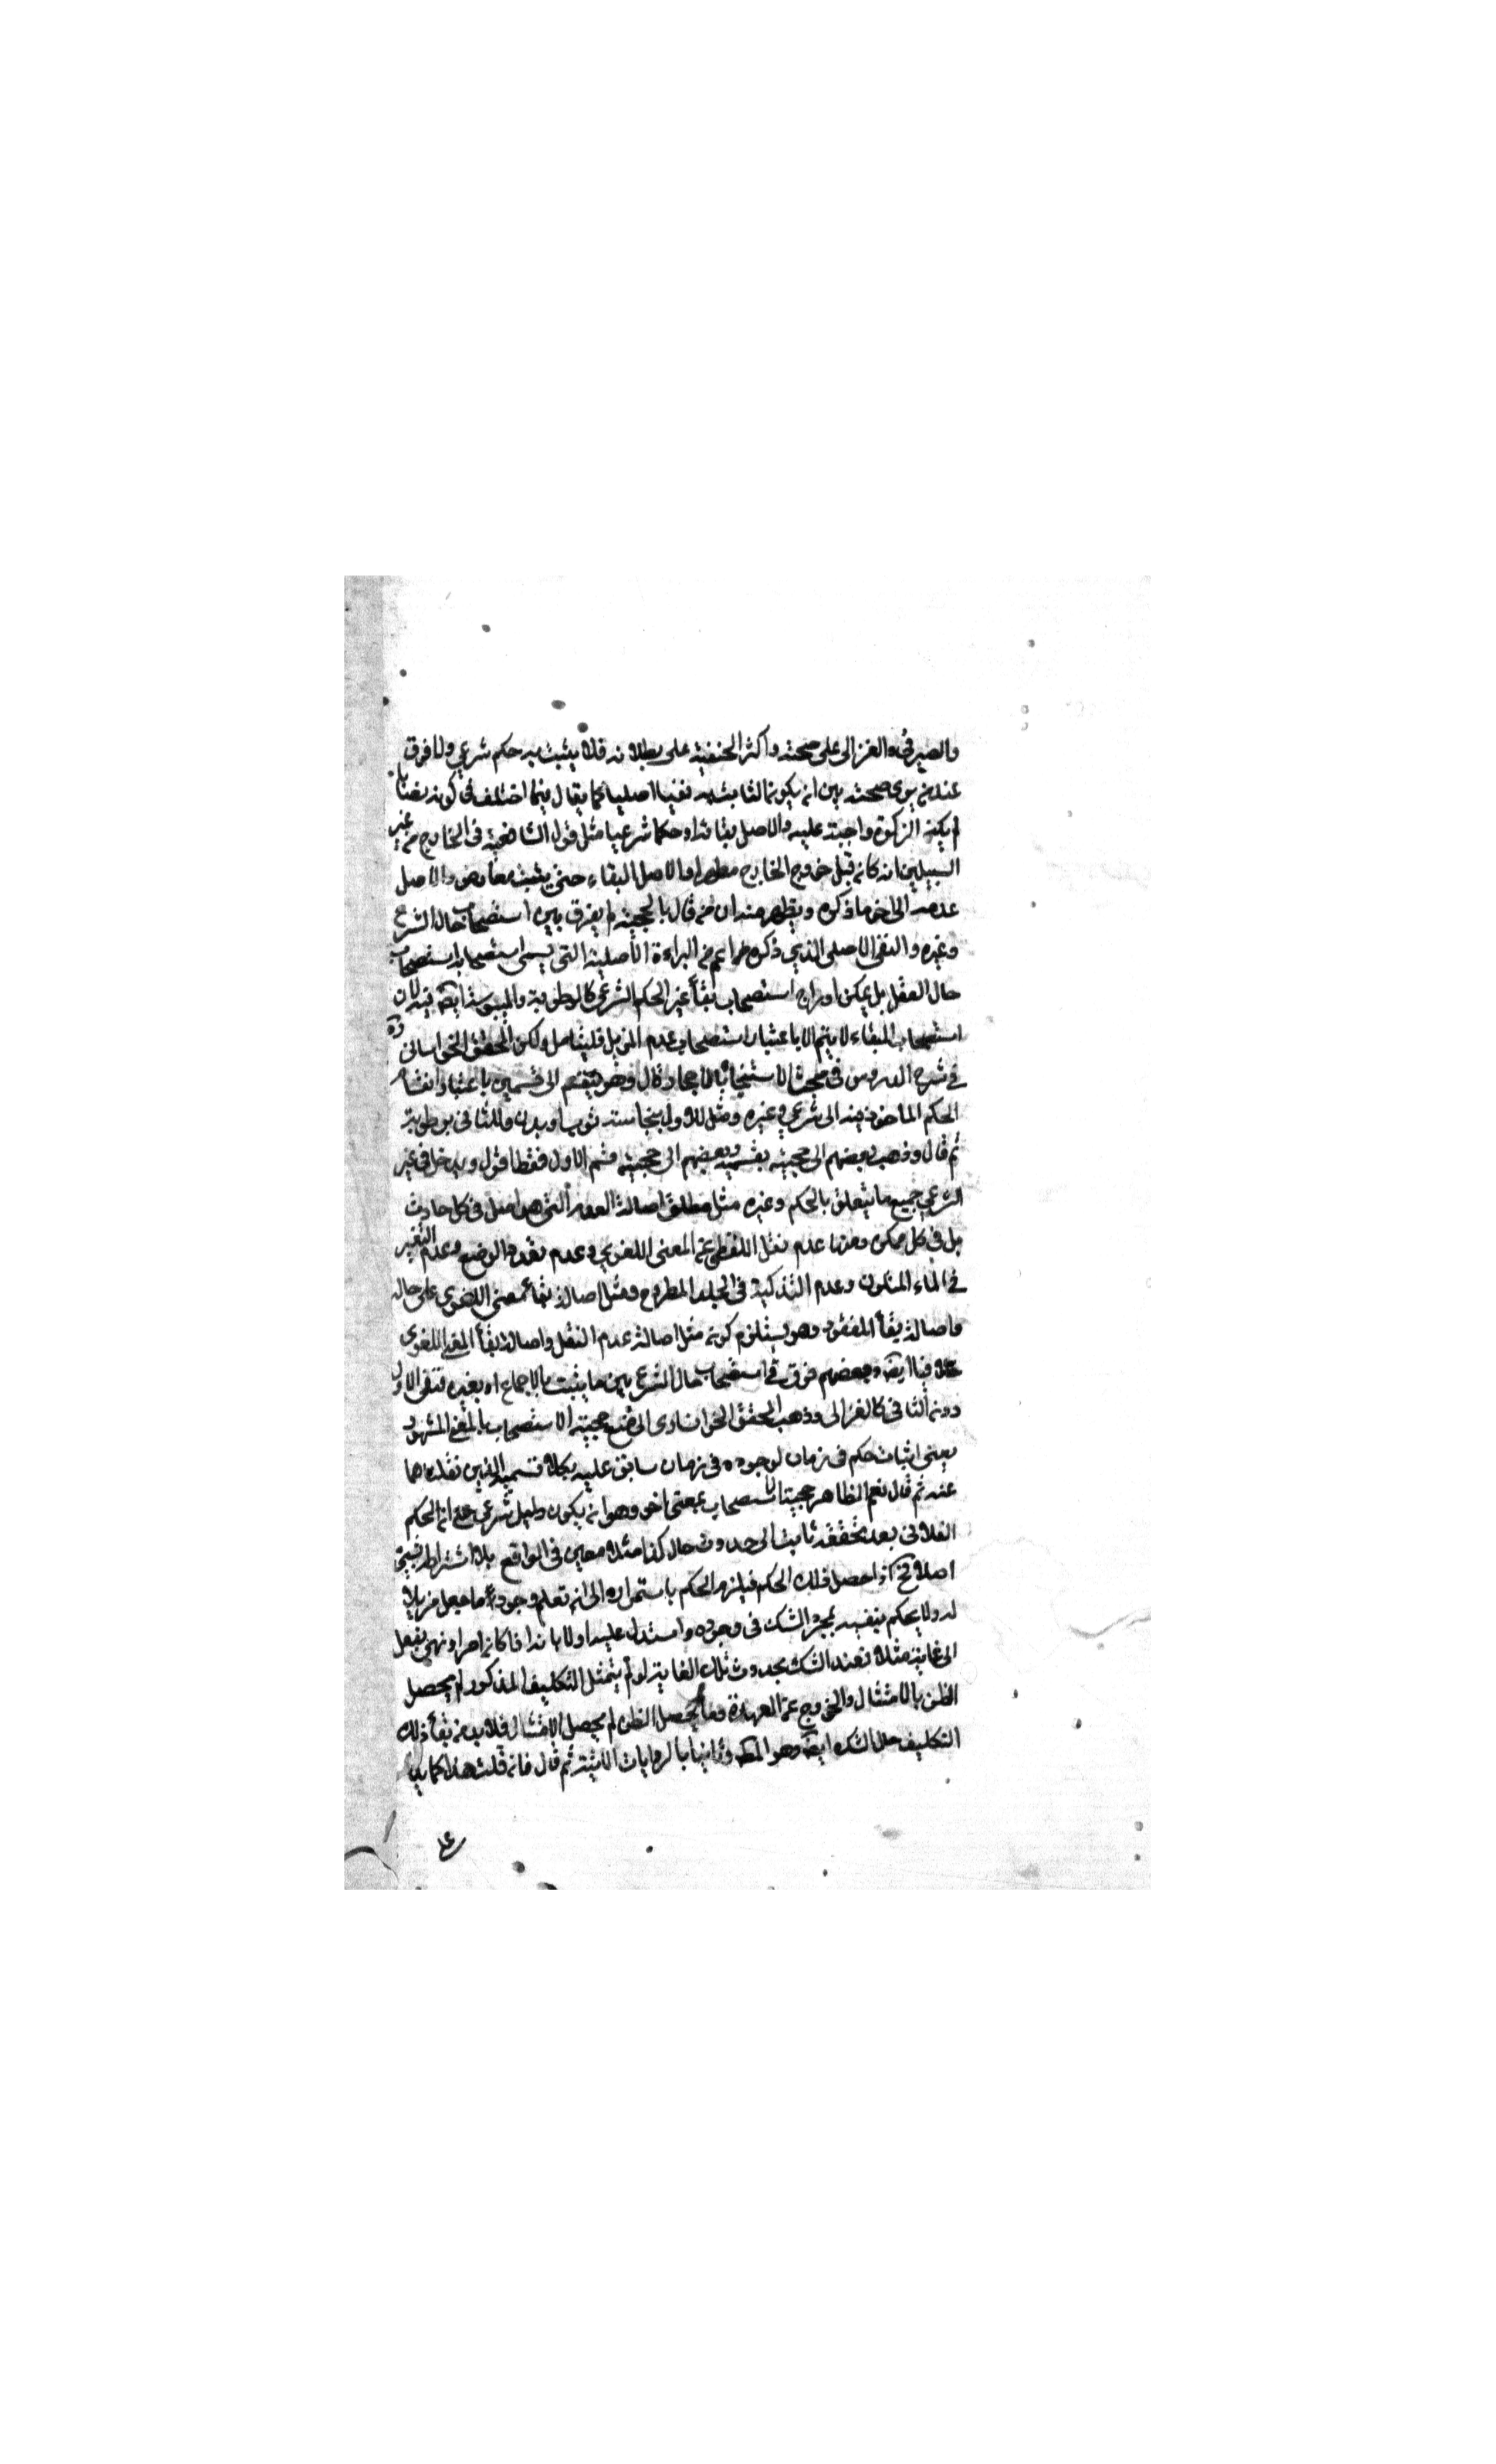 والصيرفى والغزالى على صحته واكثر الحنفية على بطلانه فلا يثبت به حكم شرعي ولا فرق
عند من يرى صحته بين ان يكون الثابت به نفيا اصليا كما يقال فيما اختلف فى كونه نصابا
لم يكن الزكوة واجبة عليه والاصل بقائه او حكما شرعيا مثل قول الشافعية فى الخارج من غير
السبيلين انه كان قبل خروج الخارج متطهرا والاصل البقاء حتى يثبت معارض والاصل
عدمه الى اخر ما ذكره ويظهر منه ان من قال بالحجية لم يفرق بين استصحاب حال الشرع
وغيره والنفى الاصلى الذي ذكره اعم من البراءة الاصلية التى يسمى استصحابها استصحاب
حال العقل بل يمكن ادراج استصحاب بقأ غير الحكم الشرعي كالرطوبة واليبوسة ايضه فيه لان
استصحاب البقاء لا يتم الا باعتبار استصحاب عدم المزيل فليتامل ولكن المحقق الخوانسارى ره
في شرح الدروس فى مبحث الاستنجاء بالاحجار قال وهو ينقسم الى قسمين باعتبار انقسام
الحكم الماخوذ فيه الى شرعي وغيره ومثل للاول بنجاسة ثوب او بدن وللثانى برطوبته
ثم قال وذهب بعضهم الى حجيته بقسميه وبعضهم الى حجية قسم الاول فقط اقول ويدخل فى غير
الشرعي جميع ما يتعلق بالحكم وغيره مثل مطلق اصالة العدم التى هى اصل فى كل حادث
بل في كل ممكن ومنها عدم نقل اللفظ عن المعنى اللغوي وعدم تعدد الوضع وعدم التغير
في الماء المتلون وعدم التذكية فى الجلد المطروح ومثل اصالة بقأ معنى اللغوى على حاله
واصالة بقأ المفقود وهو يستلزم كون مثل اصالة عدم النقل واصالة بقأ المعنى اللغوى
خلافيا ايضه وبعضهم فرق في استصحاب حال الشرع بين ما يثبت بالاجماع او بغيره فنفى الاول
دون الثانى كالغزالى وذهب المحقق الخوانسارى الى منع حجية الاستصحاب بالمعنى المشهور
يعنى اثبات حكم فى زمان لوجوده فى زمان سابق عليه بكلا قسميه الذين نقلناهما
عنه ثم قال نعم الظاهر حجية الاستصحاب بمعنى اخر وهو ان يكون دليل شرعي على ان الحكم
الفلانى بعد تحققه ثابت الى حدوث حال كذا مثلا معين فى الواقع بلا اشتراطه بشئ
اصلا فح اذا حصل ذلك الحكم فيلزم الحكم باستمراره الى ان تعلم وجود ما جعل مزيلا
له ولا يحكم بنفيه بمجرد الشك فى وجوده واستدل عليه اولا بانه اذا كان امر او نهى بفعل
الى غاية مثلا فعند الشك بحدوث تلك الغاية لو لم يتمثل التكليف المذكور لم يحصل
الظن بالامتثال والخروج عن العهدة وما لم يحصل الظن لم يحصل الامتثال فلا بد من بقأ ذلك
التكليف حال الشك ايضه وهو المط وثانيا بالروايات الاتية ثم قال فان قلت هذا كما يدل